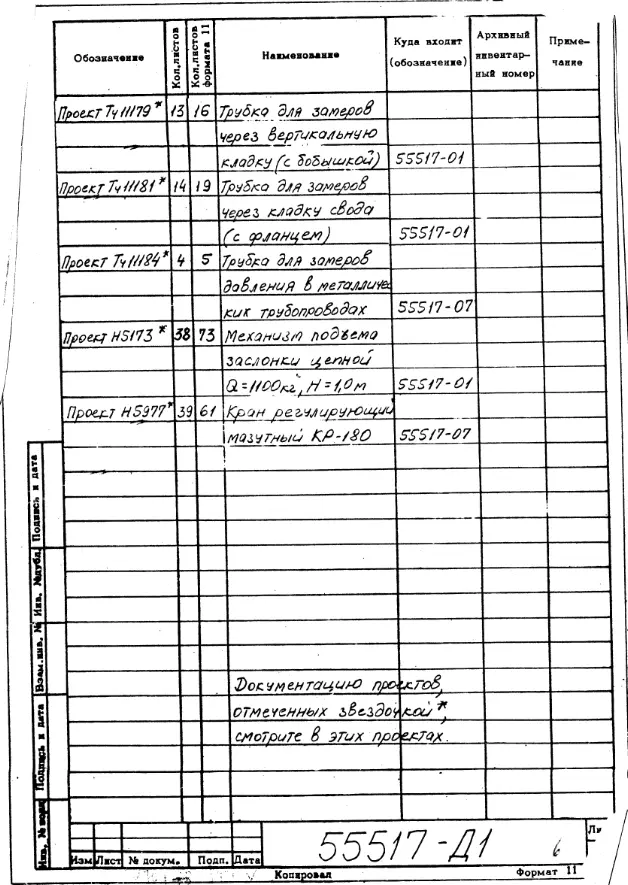 Обозначение Кол.листов Кол.листов формата 11 Наименование Куда входит (обозначение) Архивный инвентар-ный номер Приме-чание
Проект Тч11179* 13 16 Трубка для замеров
через вертикальную
кладку (с бобышкой) 55517-01
Проект Тч11181* 14 19 Трубка для замеров
через кладку свода
(с фланцем) 55517-01
Проект Тч11184* 4 5 Трубка для замеров
давления в металличес
ких трубопроводах 55517-07
Проект Н5173* 38 73 Механизм подъема
заслонки цепной
Q=1100кг, Н=1,0м 55517-01
Проект Н5977* 39 61 Кран регулирующий
мазутный КР-180 55517-07
Документацию проектов,
отмеченных звездочкой*,
смотрите в этих проектах.
Подпись и дата
Инв. №дубл.
Взам.инв. №
Подпись и дата
Инв. № подл
55517-Д1
6
Ли
Изм Лист № докум. Подп. Дата
Копировал Формат 11